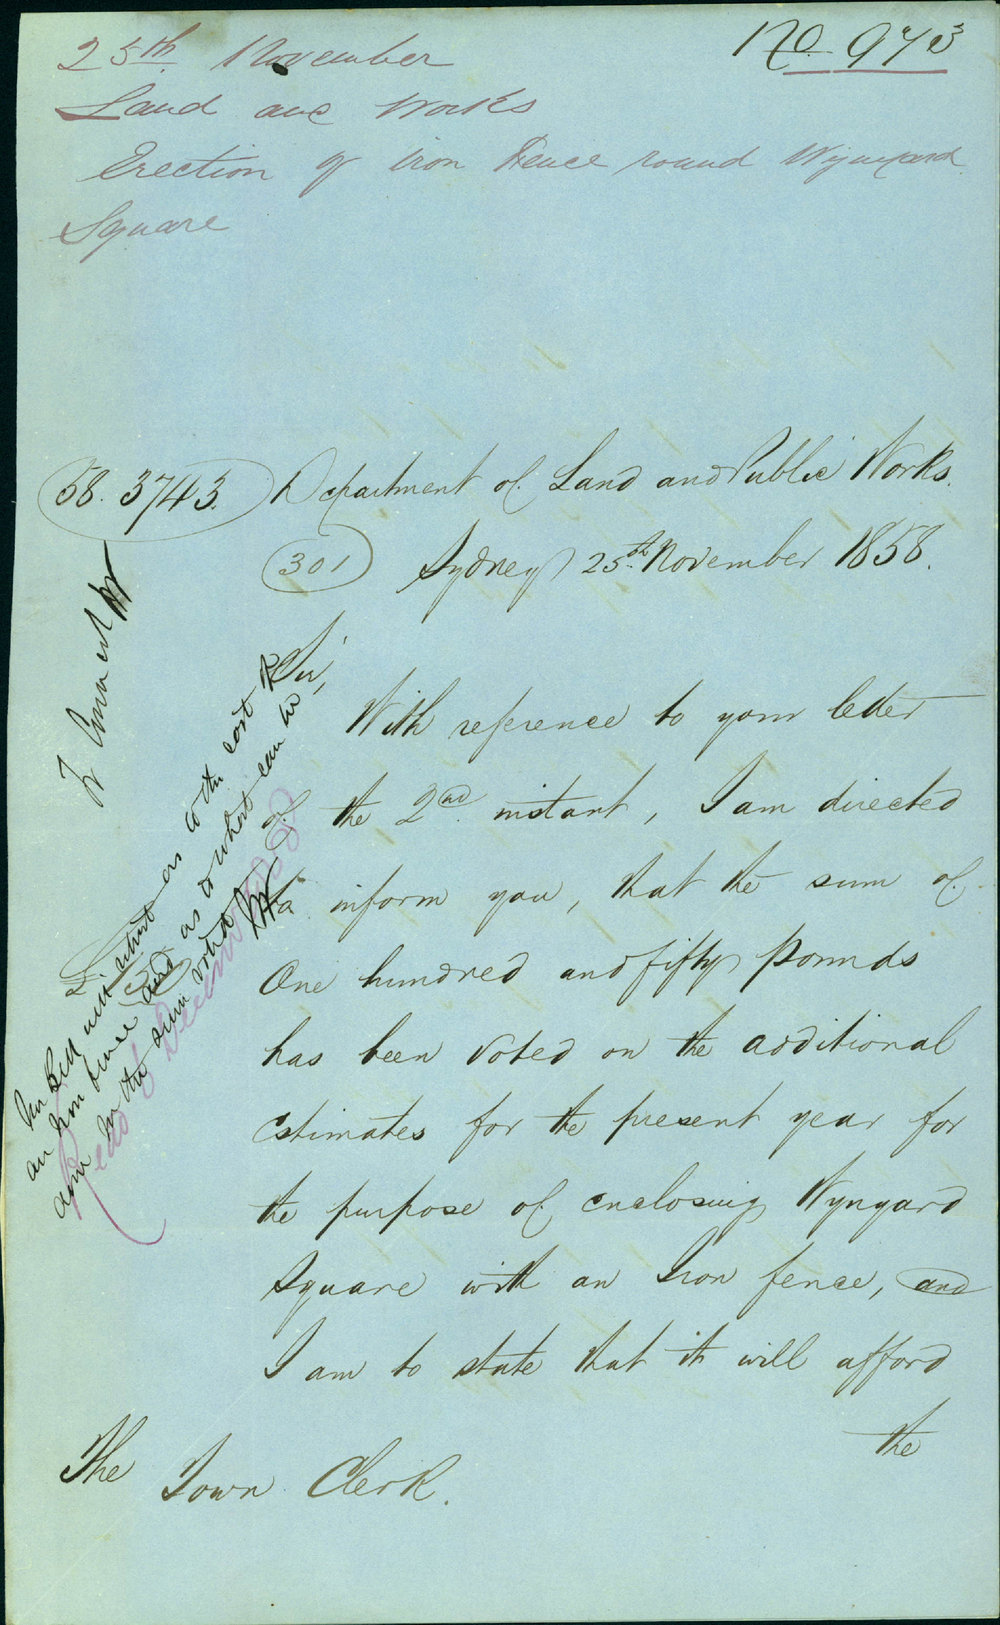 No. 973
25th November
Land and Works
Erection of Iron Fence round Wynyard
Square
58.3743. Department of Land and Public Works.
301 Sydney 25th November 1858.
Sir,
With reference to your letter
of the 2nd instant, I am directed
to inform you, that the sum of
£150 One hundred and fifty pounds
has been voted on the additional
estimates for the present year for
the purpose of enclosing Wynyard
Square with an Iron fence, and
I am to state that it will afford
the
The Town Clerk.
Mr Bell will report as to the cost of
an Iron fence and as to what can be
done for the sum voted